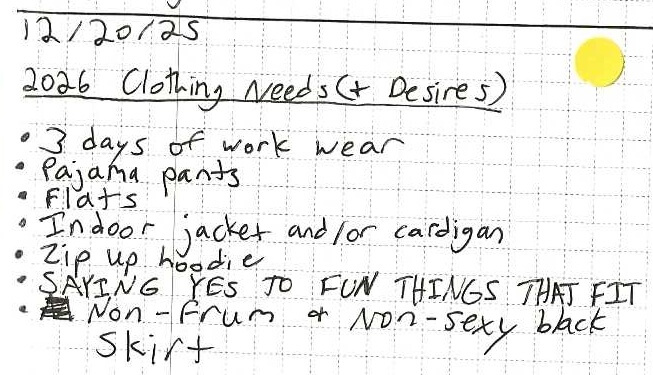 12/20/25
2026 Clothing Needs (+ Desires)
• 3 days of work wear
• Pajama pants
• Flats
• Indoor jacket and/or cardigan
• Zip up hoodie
• SAYING YES TO FUN THINGS THAT FIT
• Non-frum + Non-sexy black
Skirt